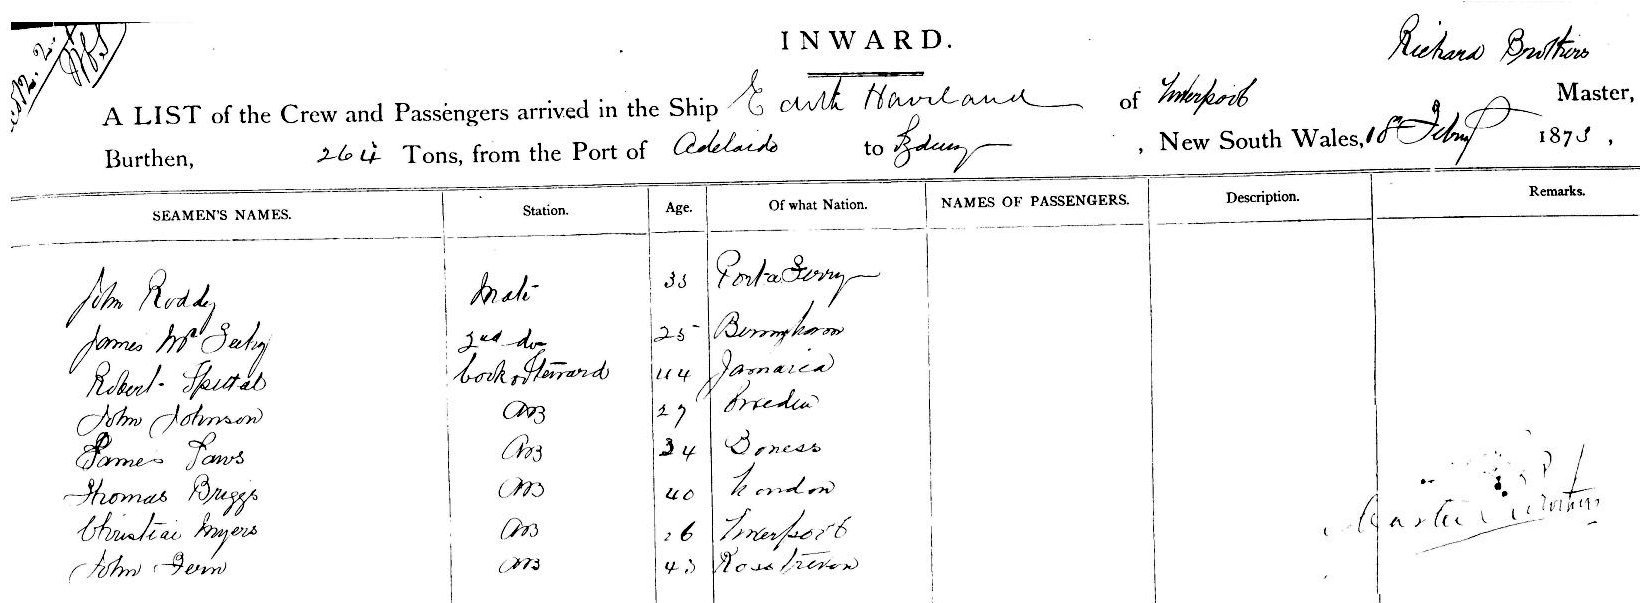 INWARD.
Richard Brothers
A LIST of the Crew and Passengers arrived in the Ship Edith Haviland of Liverpool Master,
Burthen, 264 Tons, from the Port of Adelaide to Sydney , New South Wales, 18 Febry 1873 ,
SEAMEN'S NAMES. Station. Age. Of what Nation. NAMES OF PASSENGERS. Description. Remarks.
John Roddy Mate 33 Portaferry
James Mc 2nd do 25
Robert Spittal Cook & Steward 44 Jamaica
John Johnson AB 27 Sweden
James Taws AB 34 Boness
Thomas Briggs AB 40 London
Christian Myers AB 26 Liverpool
John Fern AB 43 Rosstrevor